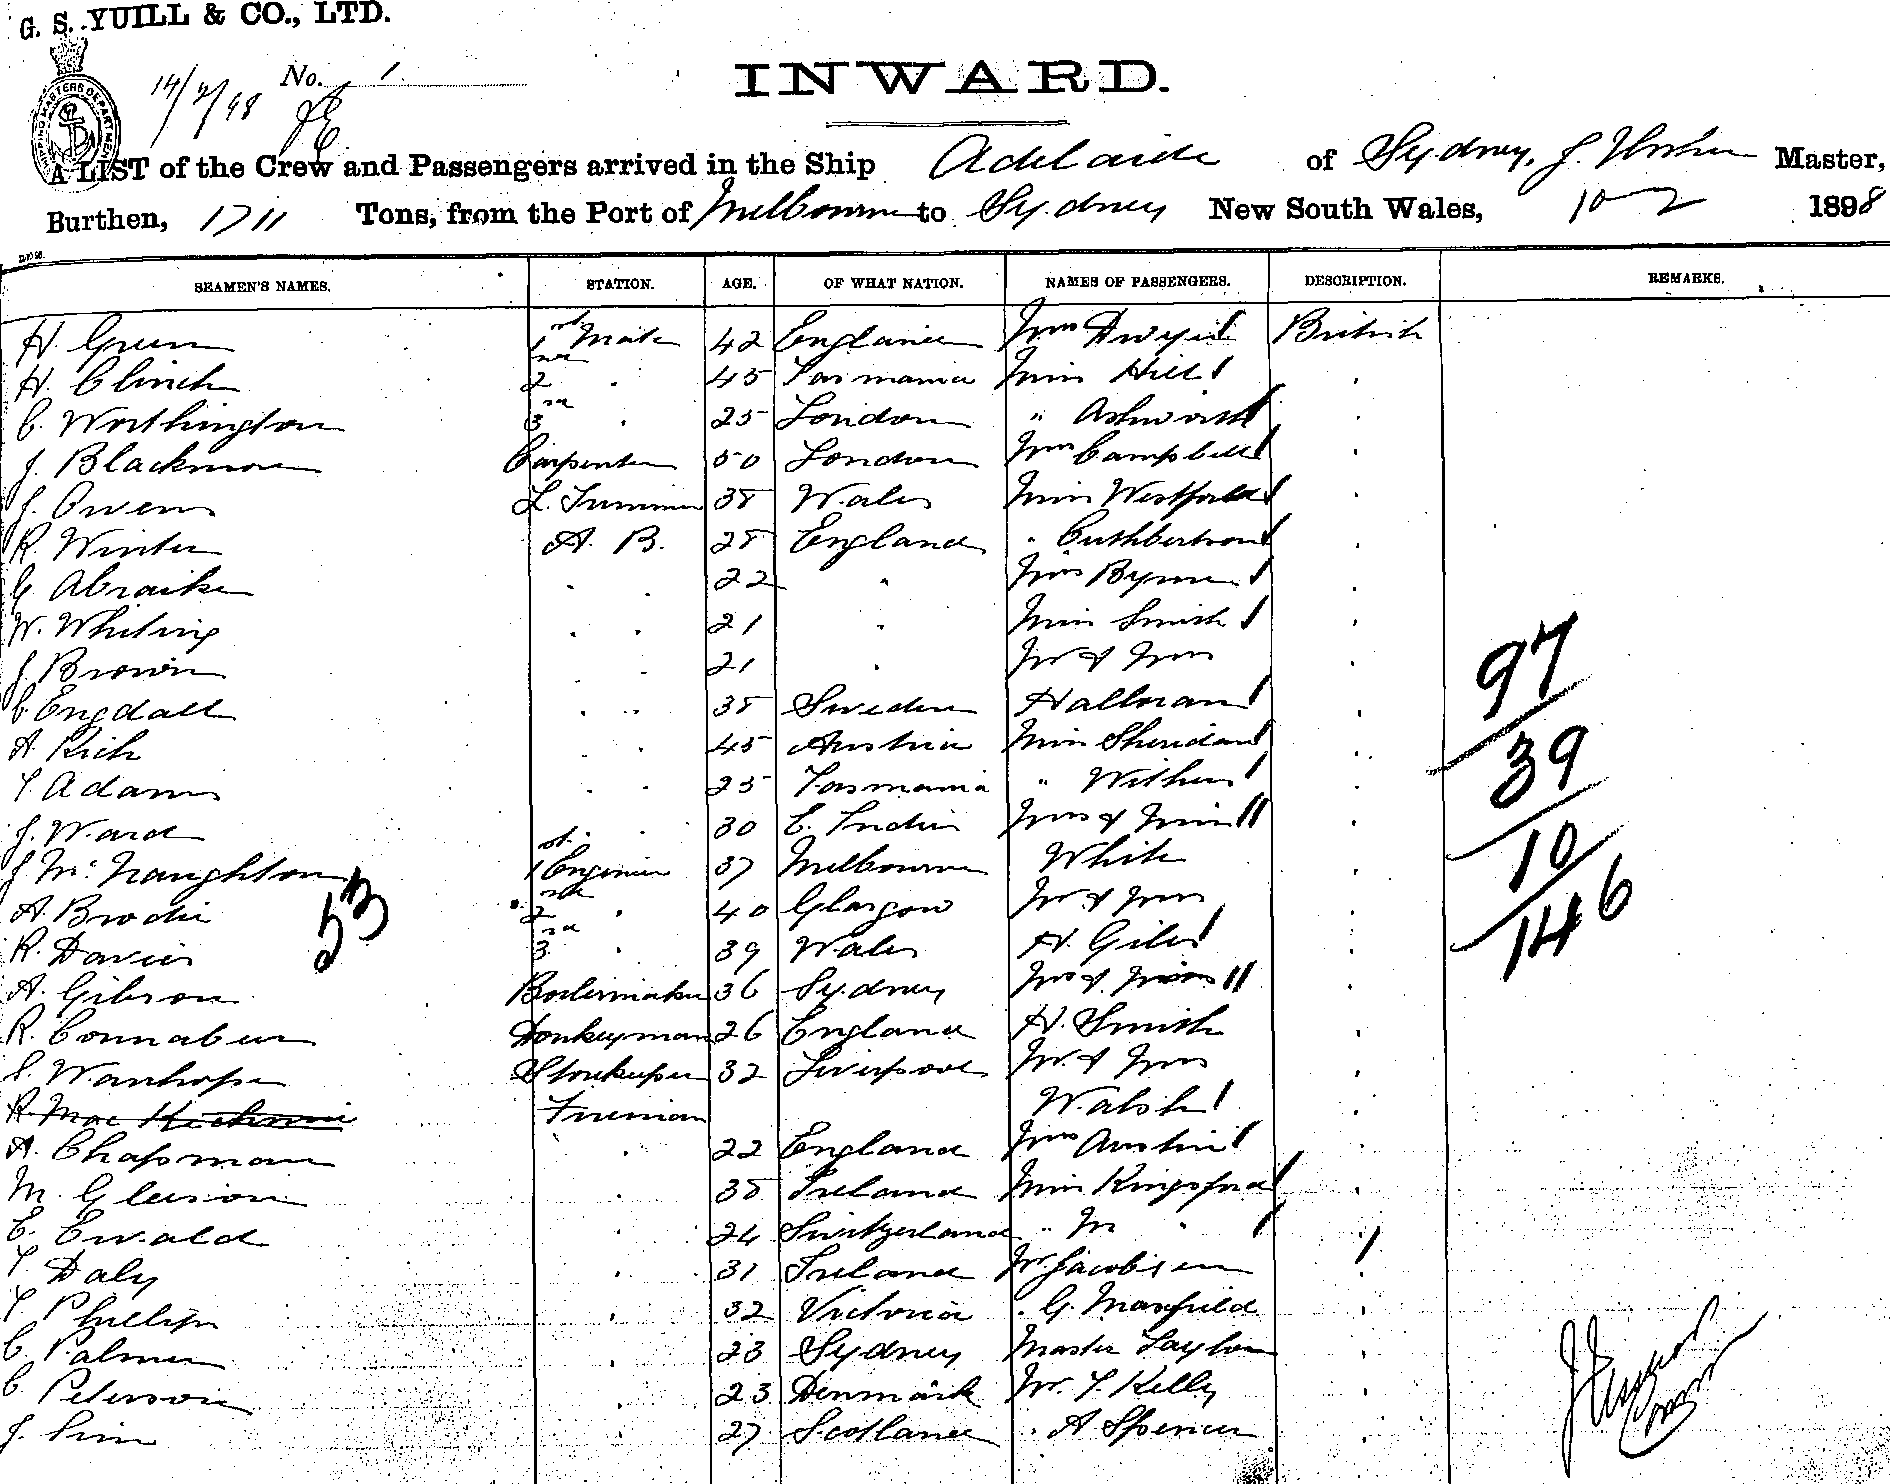 G. S. YUILL & CO., LTD.
14/2/98 No. 1.
INWARD.
A LIST of the Crew and Passengers arrived in the Ship Adelaide of Sydney, J. Master,
Burthen, 1711 Tons, from the Port of Melbourne to Sydney New South Wales, 10-2 1898
SEAMEN'S NAMES. STATION. AGE. OF WHAT NATION. NAMES OF PASSENGERS. DESCRIPTION. REMARKS.
H. Green 1st Mate 42 England Mrs Dwyer British
H. Clinch 2nd " 45 Tasmania Miss Hill "
C. Worthington 3rd " 25 London " Ashworth "
J. Blackmore Carpenter 50 London Mrs Campbell "
J. Owens L. Trimmer 38 Wales Miss Westfield "
R. Winter A. B. 28 England " Cuthbertson "
G. " " 22 " Mrs Byrne "
W. Whiting " " 21 " Miss Smith "
J. Brown " " 21 " Mr & Mrs
C. Engdall " " 38 Sweden Halloran "
A. Rich " " 45 Austria Miss Sheridan "
T. Adams " " 25 Tasmania " Withers "
J. Ward " " 30 E. Indies Mrs & Miss "
J. McNaughton 1st Engineer 37 Melbourne White
A. Brodie 2nd " 40 Glasgow Mr & Mrs "
R. Davies 3rd " 39 Wales H. Giles "
A. Gibson Boilermaker 36 Sydney Mrs & Misses "
R. Connabeer Donkeyman 26 England H. Smith "
S. Wanhope Storekeeper 32 Liverpool Mr & Mrs "
R. Mac Fireman Walsh "
A. Chapman " 22 England Mrs Austin "
M. Gleeson " 38 Ireland Miss Kingsford "
E. Ewald " 24 Switzerland " M " "
T. Daly " 31 Ireland Mr Jacobsen "
T. Phillips " 32 Victoria " G. Maxfield "
C. Palmer " 23 Sydney Master Taylor "
C. Peterson " 23 Denmark Mr. T. Kelly "
J. Sim " 27 Scotland " A Spencer "
53
97
39
10
146